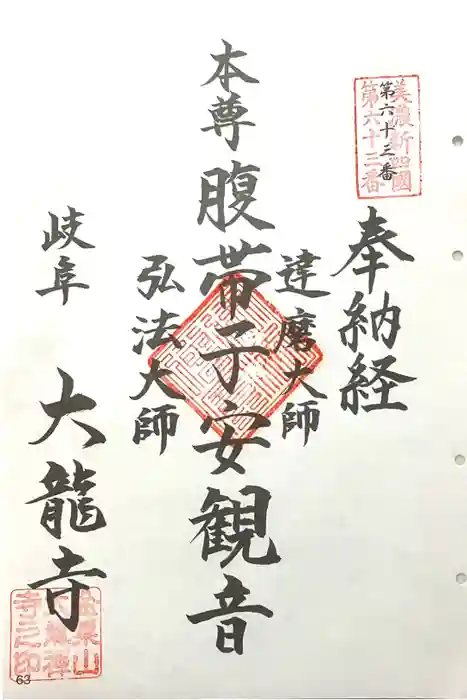 美濃新四國
第六十二番
第六十三番
奉納経
達磨大師
本尊腹帯子安観音
弘法大師
岐阜 大龍寺
寺之印
63